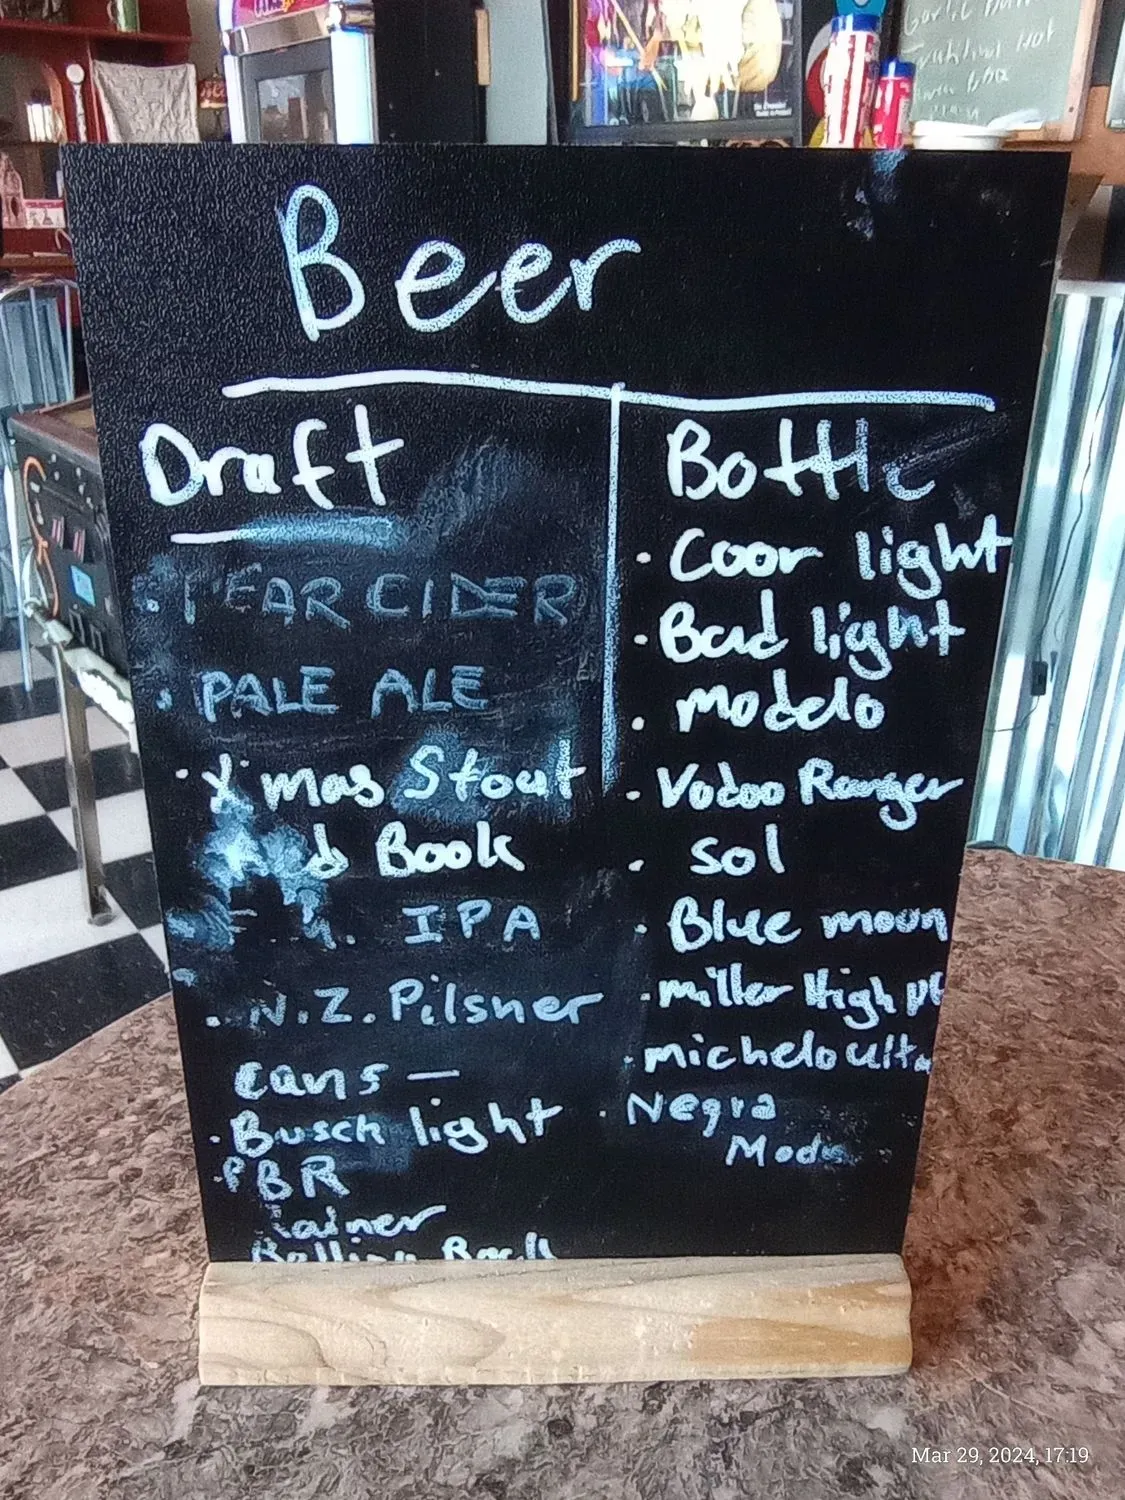 Beer
Draft
PEAR CIDER
PALE ALE
X'mas Stout
Book
IPA
N.Z. Pilsner
cans —
Busch light
PBR
Rainer
Rolling Rock
Bottle
Coor light
Bud light
Modelo
Vodoo Ranger
Sol
Blue moon
Miller High
michelo ulta
Negra
Garlic
Hot
BBQ
Mar 29, 2024, 17:19